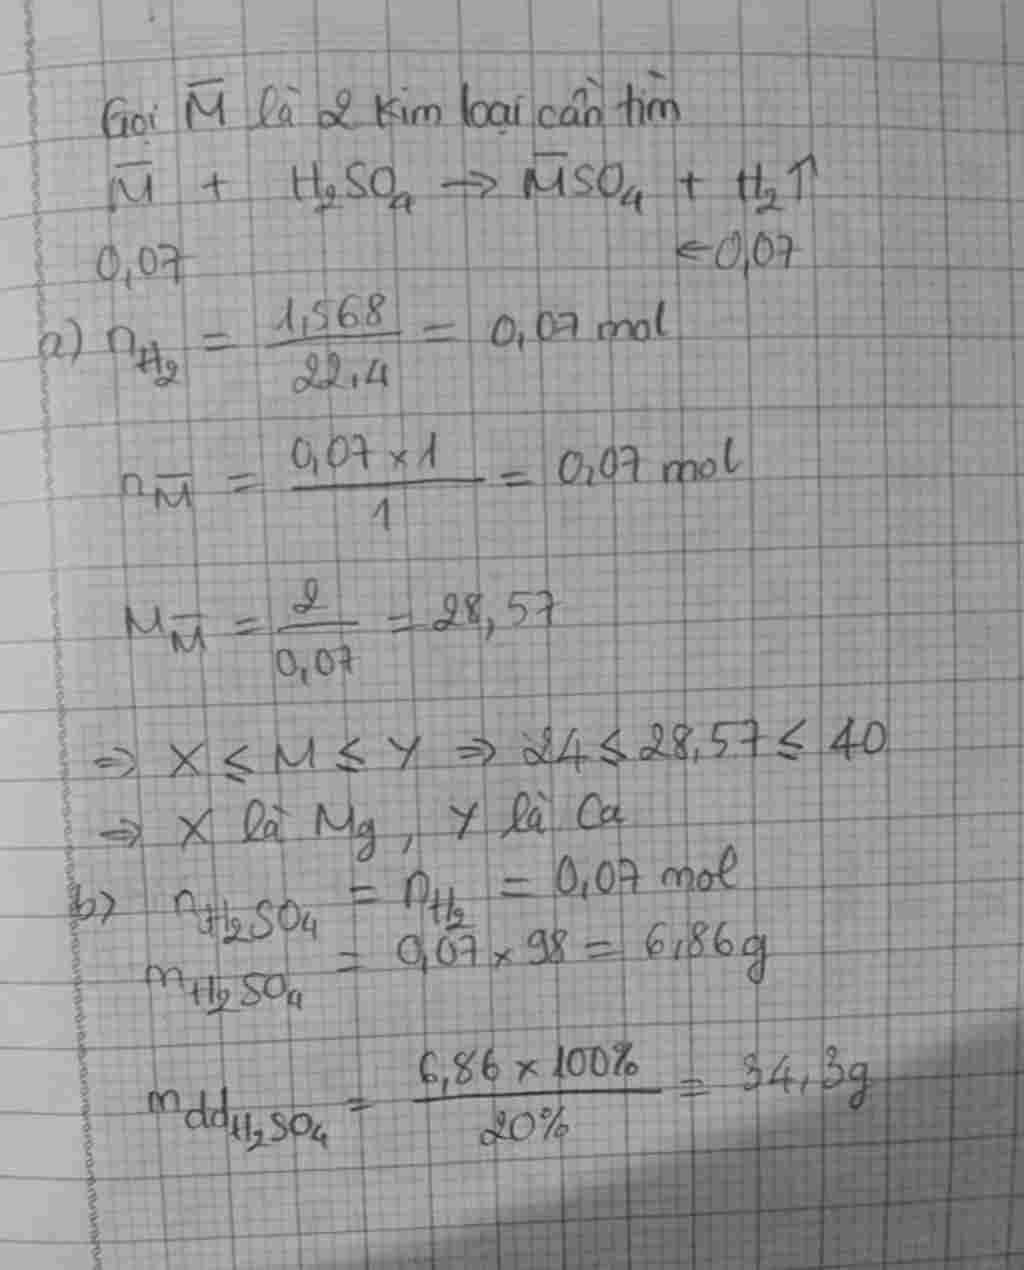 Gọi M̅ là 2 kim loại cần tìm
M̅ + H₂SO₄ → M̅SO₄ + H₂↑
0,07 ←0,07
a) nH₂ = 1,568/22,4 = 0,07 mol
nM̅ = 0,07×1/1 = 0,07 mol
MM̅ = 2/0,07 = 28,57
⇒ X ≤ M ≤ Y ⇒ 24 ≤ 28,57 ≤ 40
⇒ X là Mg, Y là Ca
b) nH₂SO₄ = nH₂ = 0,07 mol
mH₂SO₄ = 0,07 × 98 = 6,86g
mddH₂SO₄ = 6,86 × 100%/20% = 34,3g